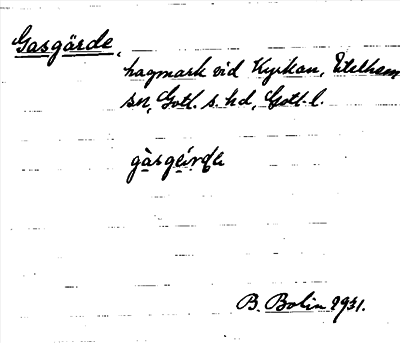 Gasgärde,
hagmark vid Kyrkan, Etelhem
sn, Gotl. s. hd, Gotl. l.
gàsgéırde
B. Bolin 1931.